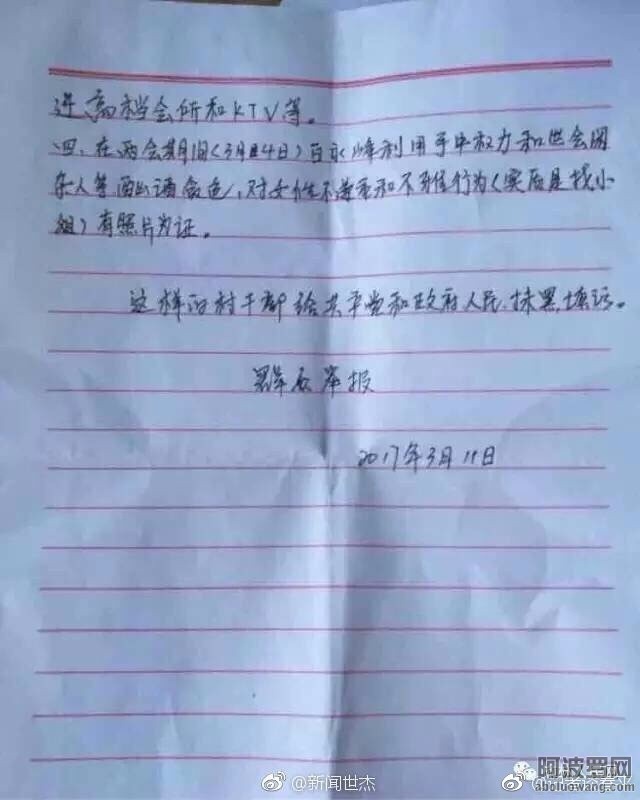 进高档会所和KTV等。
四、在两会期间(3月4日)白永峰利用手中权力和社会闲
杂人等酒色,对女性不尊重和不雅行为(实后是找小
姐)有照片为证。
这样的村干部给共产党和政府人民抹黑填污。
群众举报
2017年3月11日
@新闻世杰
阿波罗网
aboluowang.com